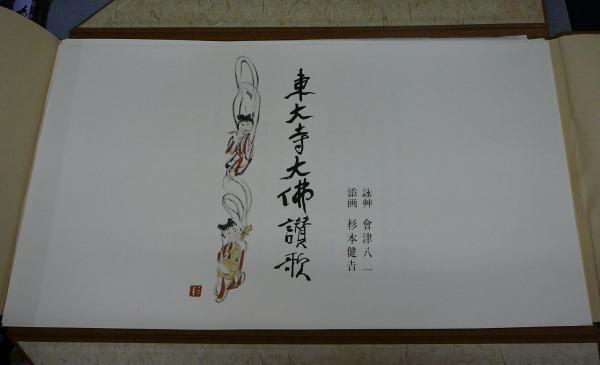 東大寺大佛讃歌
詠艸 會津八一
添画 杉本健吉
杉